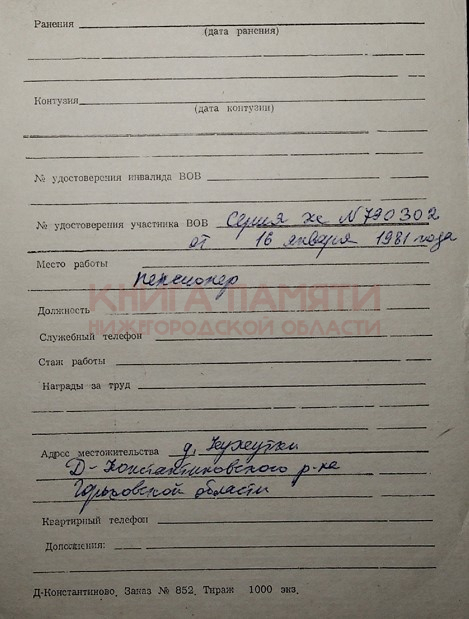 Ранения
(дата ранения)
Контузия
(дата контузии)
№ удостоверения инвалида ВОВ
№ удостоверения участника ВОВ Серия ж N 790302
от 16 января 1981 года
Место работы пенсионер
КНИГА ПАМЯТИ
Должность
НИЖЕГОРОДСКОЙ ОБЛАСТИ
Служебный телефон
Стаж работы
Награды за труд
Адрес местожительства д.
Д-Константиновского р-на
Горьковской области
Квартирный телефон
Дополнения:
Д-Константиново, Заказ № 852. Тираж 1000 экз.